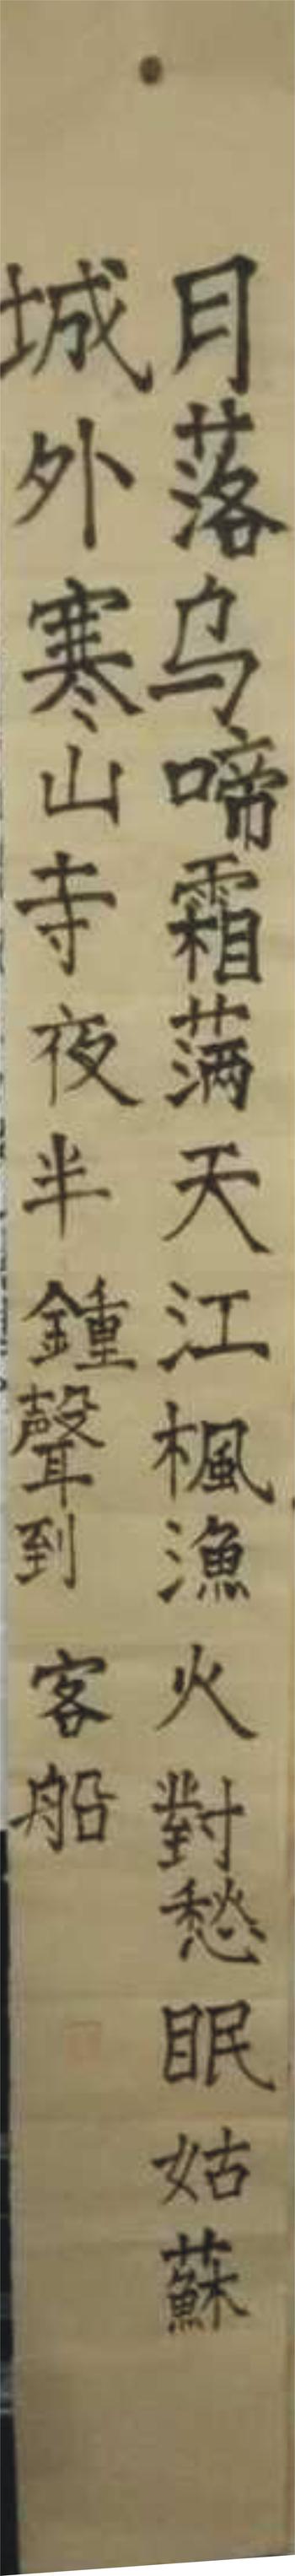 月落乌啼霜满天江楓漁火對愁眠姑蘇
城外寒山寺夜半鍾聲到客船